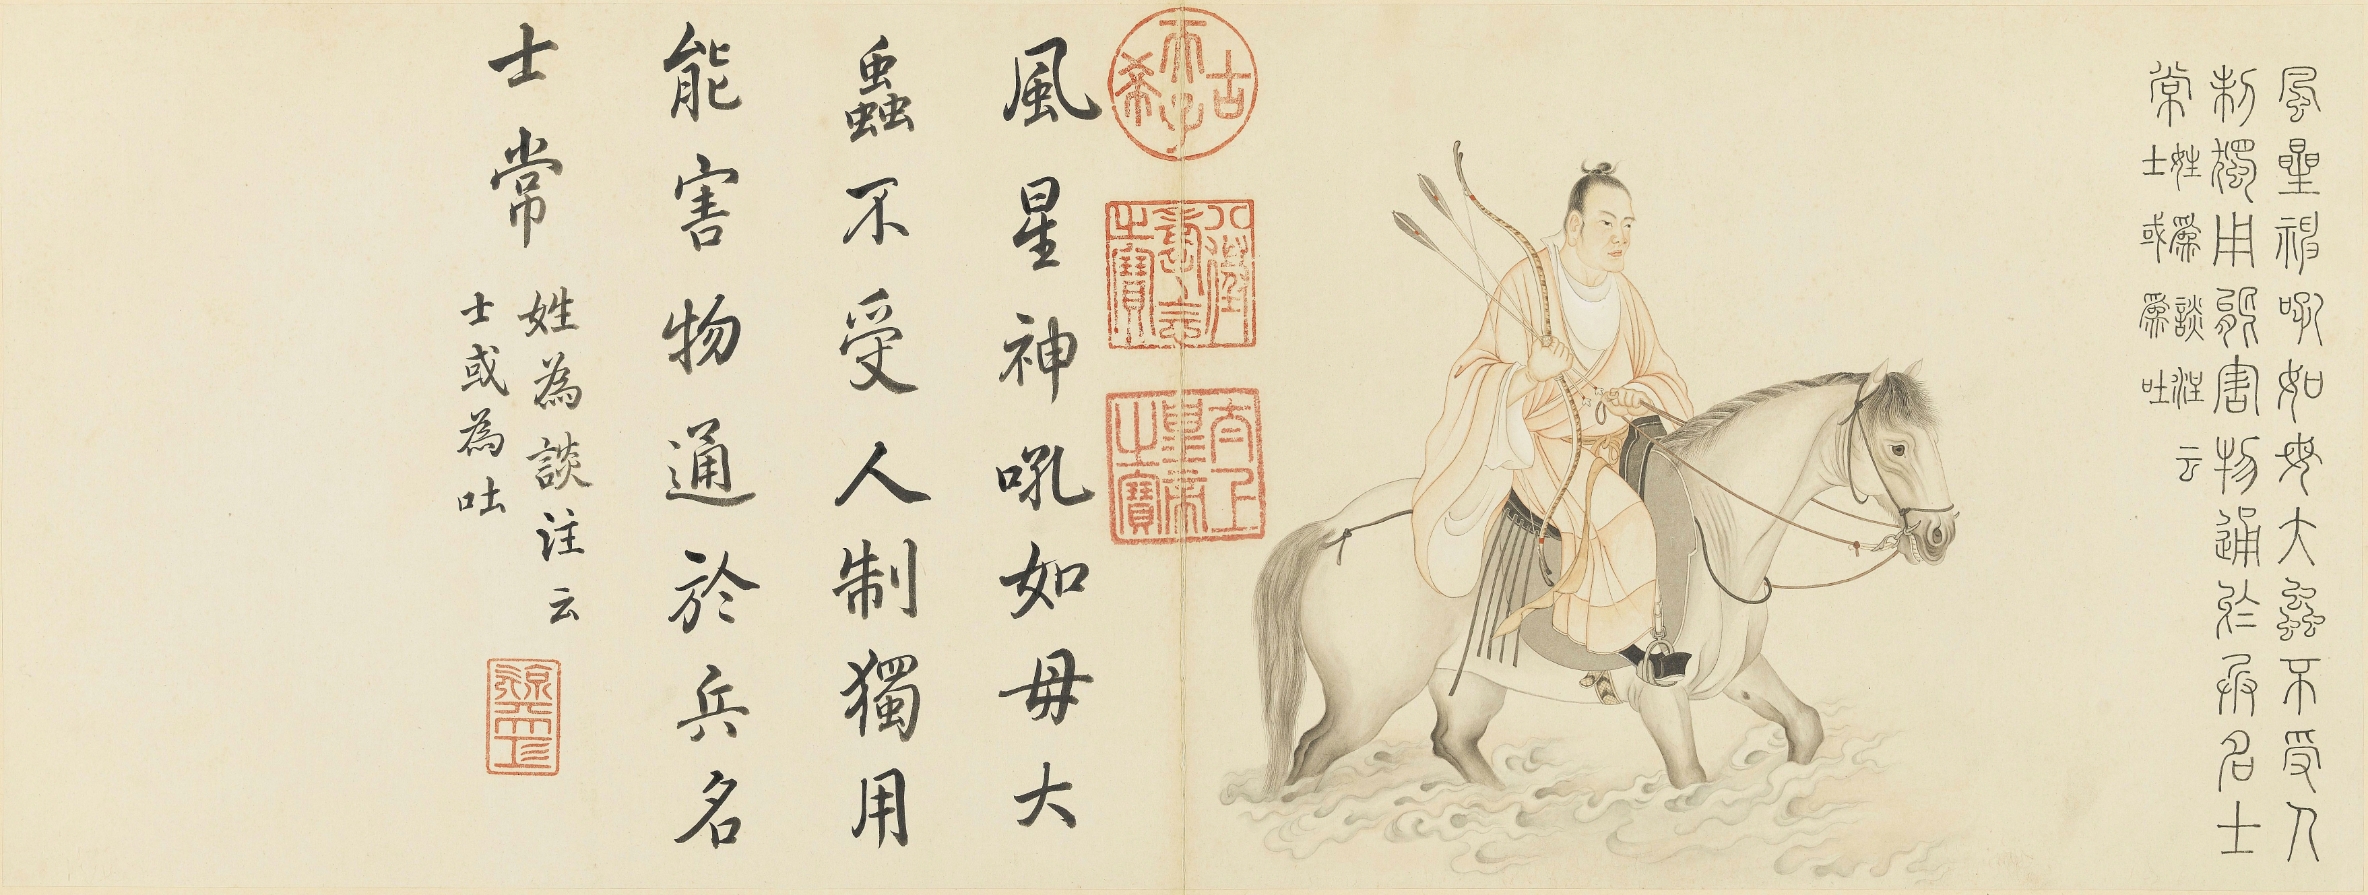 風星神吼如毋大蟲不受人
制獨用能害物通於兵名士
常
姓為談注云
士或為吐
古希天子
八徵耄念之寶
太上皇帝之寶
風星神吼如毋大
蟲不受人制獨用
能害物通於兵名
士常
姓為談注云
士或為吐